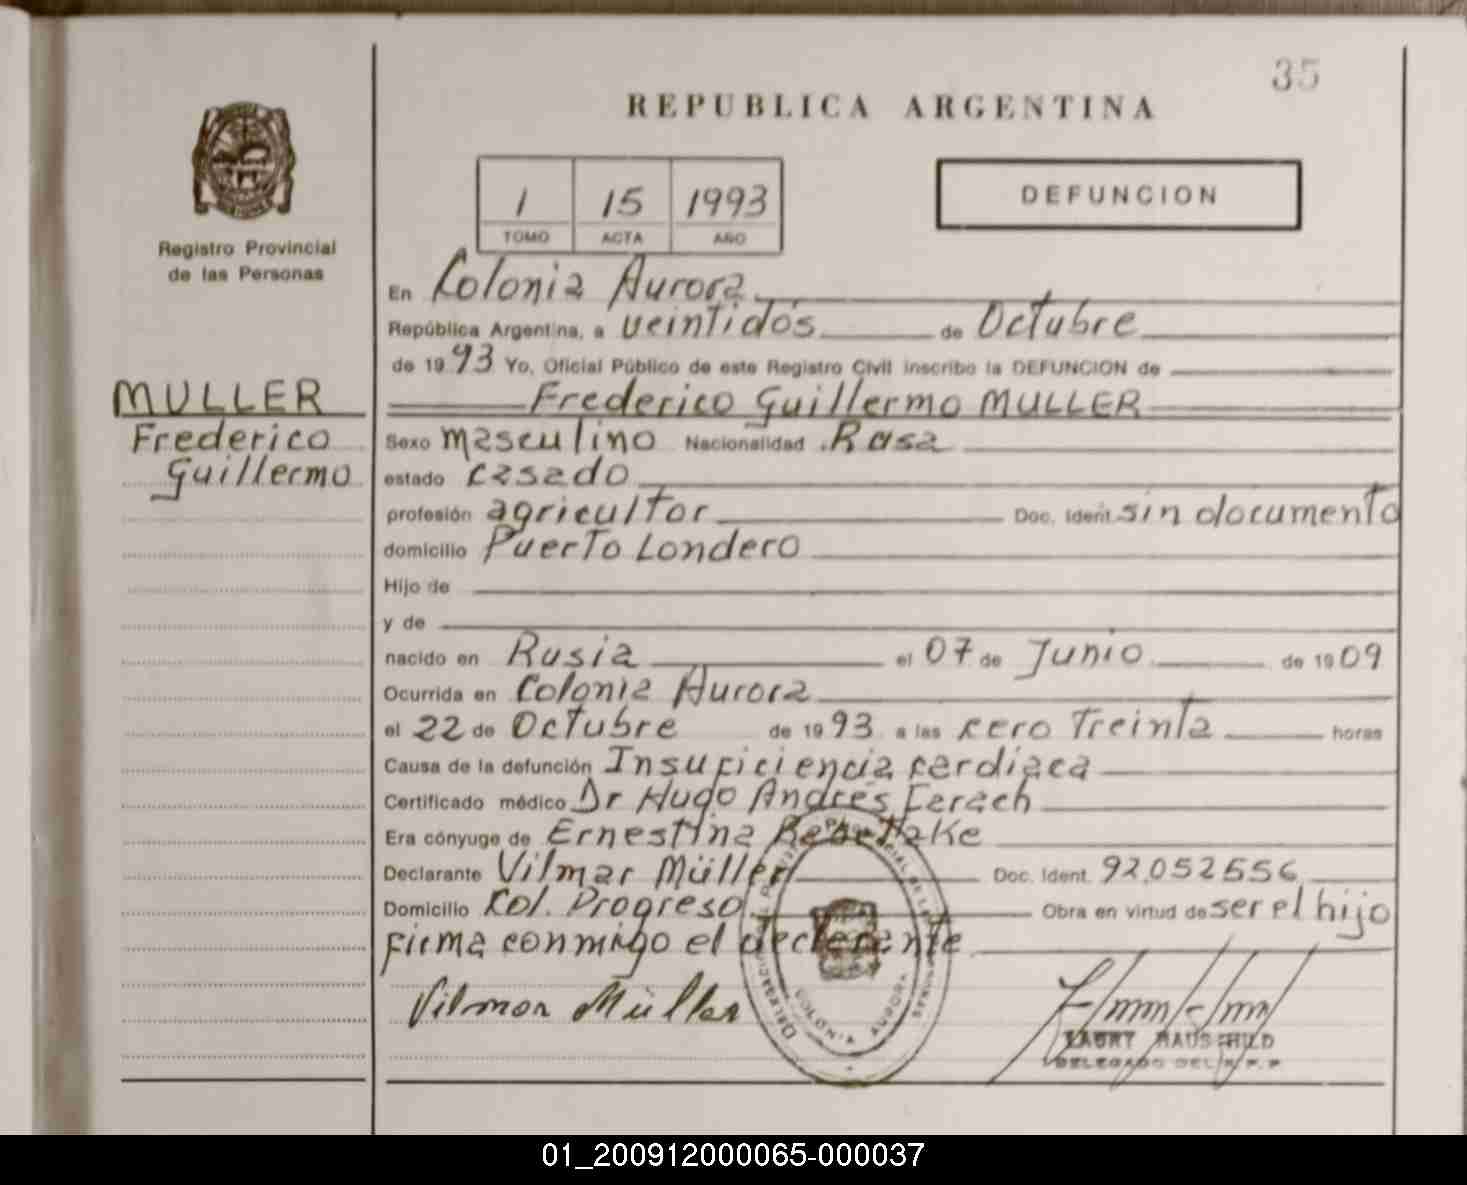 35
REPUBLICA ARGENTINA
1 15 1993
TOMO ACTA AÑO
DEFUNCION
Registro Provincial
de las Personas
MULLER
Frederico
Guillermo
En Colonia Aurora
República Argentina, a veintidós de Octubre
de 1993 Yo, Oficial Público de este Registro Civil inscribo la DEFUNCION de
Frederico Guillermo MULLER
Sexo masculino Nacionalidad Rusa
estado casado
profesión agricultor Doc. Ident. sin documento
domicilio Puerto Londero
Hijo de
y de
nacido en Rusia el 07 de Junio de 1909
Ocurrida en Colonia Aurora
el 22 de Octubre de 1993 a las cero Treinta horas
Causa de la defunción Insuficiencia cardiaca
Certificado médico Dr Hugo Andrés
Era cónyuge de Ernestina
Declarante Vilmar Müller Doc. Ident. 92.052556
Domicilio Col. Progreso Obra en virtud de ser el hijo
firma conmigo el declarante
Vilmar Müller
COLONIA AURORA
HAUSCHILD
DELEGADO DEL R.P.P.
01_200912000065-000037